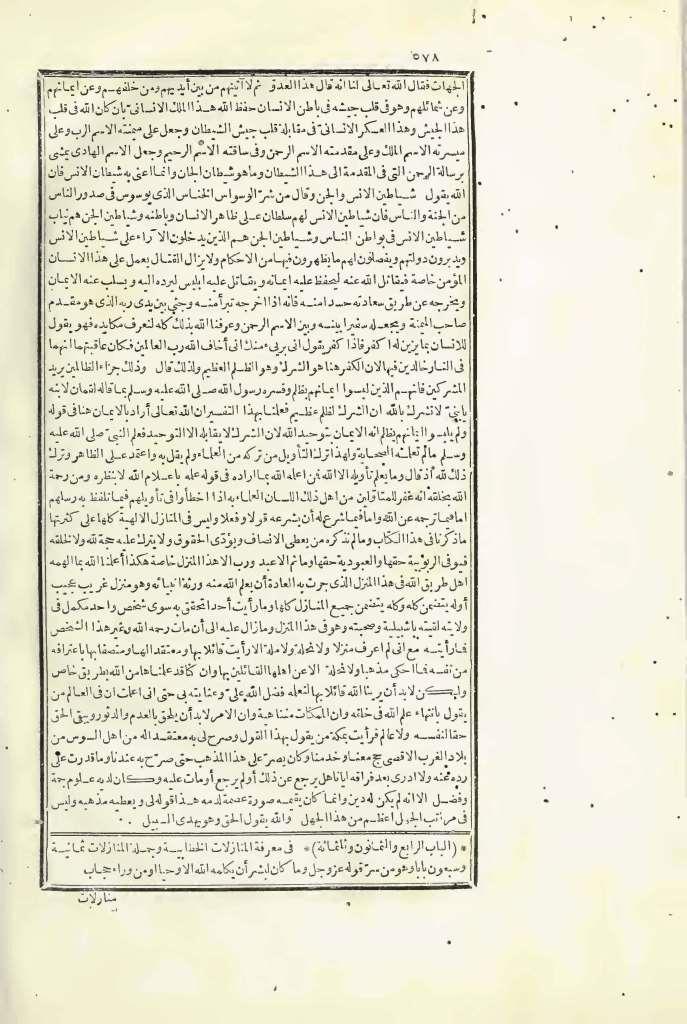 ٥٧٨
الجهات فقال الله تعالى لنا انه قال هذا العدو ثم لآتينهم من بين أيديهم ومن خلفهم وعن ايمانهم
وعن شمائلهم وهو فى قلب جيشه فى باطن الانسان حفظ الله هذا الملك الانسانى بان كان الله فى قلب
هذا الجيش وهذا العسكر الانسانى فى مقابلة قلب جيش الشيطان وجعل على ميمنته الاسم الرب وعلى
ميسرته الاسم الملك وعلى مقدمته الاسم الرحمن وفى ساقته الاسم الرحيم وجعل الاسم الهادى يمشى
برسالة الرحمن التى فى المقدمة الى هذا الشيطان وما هو شيطان الجان وانما اعنى به شيطان الانس فان
الله يقول شياطين الانس والجن وقال من شر الوسواس الخناس الذى يوسوس فى صدور الناس
من الجنة والناس فان شياطين الانس لهم سلطان على ظاهر الانسان وباطنه وشياطين الجن هم نياب
شياطين الانس فى بواطن الناس وشياطين الجن هم الذين يدخلون الآراء على شياطين الانس
ويدبرون دولتهم ويفصلون لهم ما يظهرون فيها من الاحكام ولا يزال القتال يعمل على هذا الانسان
المؤمن خاصة فيقاتل الله عنه ليحفظ عليه ايمانه ويقاتل عليه ابليس ليرده اليه ويسلب عنه الايمان
ويخرجه عن طريق سعادته حسدا منه فانه اذا اخرجه تبرأ منه وجثى بين يدى ربه الذى هو مقدم
صاحب الميمنة ويجعله سفيرا بينه وبين الاسم الرحمن وعرفنا الله بذلك كله لنعرف مكايده فهو يقول
للانسان بما يزين له اكفر فاذا كفر يقول انى برىء منك انى أخاف الله رب العالمين فكان عاقبتهما انهما
فى النار خالدين فيها لان الكفر هنا هو الشرك وهو الظلم العظيم ولذلك قال وذلك جزاء الظالمين يريد
المشركين فانهم الذين لبسوا ايمانهم بظلم وفسره رسول الله صلى الله عليه وسلم بما قاله لقمان لابنه
يابنى لا تشرك بالله ان الشرك لظلم عظيم فعلمنا بهذا التفسير ان الله تعالى أراد بالايمان هنا فى قوله
ولم يلبسوا ايمانهم بظلم انه الايمان بتوحيد الله لان الشرك لا يقابله الا التوحيد فعلم النبى صلى الله عليه
وسلم مالم تعلمه الصحابة ولهذا ترك التأويل من تركه من العلماء ولم يقل به واعتمد على الظاهر وترك
ذلك لله اذ قال وما يعلم تأويله الا الله فمن اعلمه الله بما اراده فى قوله علمه باعلام الله لا بنظره ومن رحمة
الله بخلقه انه غفر للمتأولين من اهل ذلك اللسان العلماء به اذا اخطأوا فى تأويلهم فيما تلفظ به رسلهم
اما فيما ترجمه عن الله واما فيما شرع له أن يشرعه قولا وفعلا وليس فى المنازل الالهية كلها على كثرتها
ما ذكرنا فى هذا الكتاب وما لم نذكره من يعطى الانصاف ويؤدى الحقوق ولا يترك عليه حجة لله ولا لخلقه
فيوفى الربوبية حقها والعبودية حقها وما ثم الا عبد ورب الا هذا المنزل خاصة هكذا أعلمنا الله بما الهمه
اهل طريق الله فى هذا المنزل الذى جرت به العادة أن يعلم الله منه ورثة انبيائه وهو منزل غريب عجيب
أوله يتضمن كله وكله يتضمن جميع المنازل كلها وما رأيت أحدا تحقق به سوى شخص واحد مكمل فى
ولايته لقيته باشبيلية وصحبته وهو فى هذا المنزل وما زال عليه الى أن مات رحمه الله وغير هذا الشخص
فما رأيته مع انى لم اعرف منزلا ولا نحلة ولا ملة الا رأيت قائلا بها ومعتقدا لها ومتصفا بها باعترافه
من نفسه فما احكى مذهبا ولا نحلة الا عن اهلها القائلين بها وان كنا قد علمناها من الله بطريق خاص
ولكن لا بد أن يرينا الله قائلا بها لنعلم فضل الله على وعنايته بى حتى انى اعلمت ان فى العالم من
يقول بانتهاء علم الله فى خلقه وان الممكنات متناهية وان الامر لا بد أن يلحق بالعدم والدثور ويبقى الحق
حقا لنفسه ولا عالم فرأيت بمكة من يقول بهذا القول وصرح لى به معتقدا له من اهل السوس من
بلاد المغرب الاقصى حج معنا وخدمنا وكان يصر على هذا المذهب حتى صرح به عندنا وما قدرت على
رده عنه ولا ادرى بعد فراقه ايانا هل يرجع عن ذلك أو لم يرجع أو مات عليه وكان لديه علوم جمة
وفضل الا انه لم يكن له دين وانما كان يقيمه صورة عصمة لدمه هذا قوله لى ويعطيه مذهبه وليس
فى مراتب الجهل اعظم من هذا الجهل والله يقول الحق وهو يهدى السبيل
* (الباب الرابع والثمانون وثلثمائة) * فى معرفة المنازلات الخطابية وجملة المنازلات ثمانية
وسبعون بابا وهو من سر قوله عز وجل وما كان لبشر أن يكلمه الله الا وحيا او من وراء حجاب
منازلات